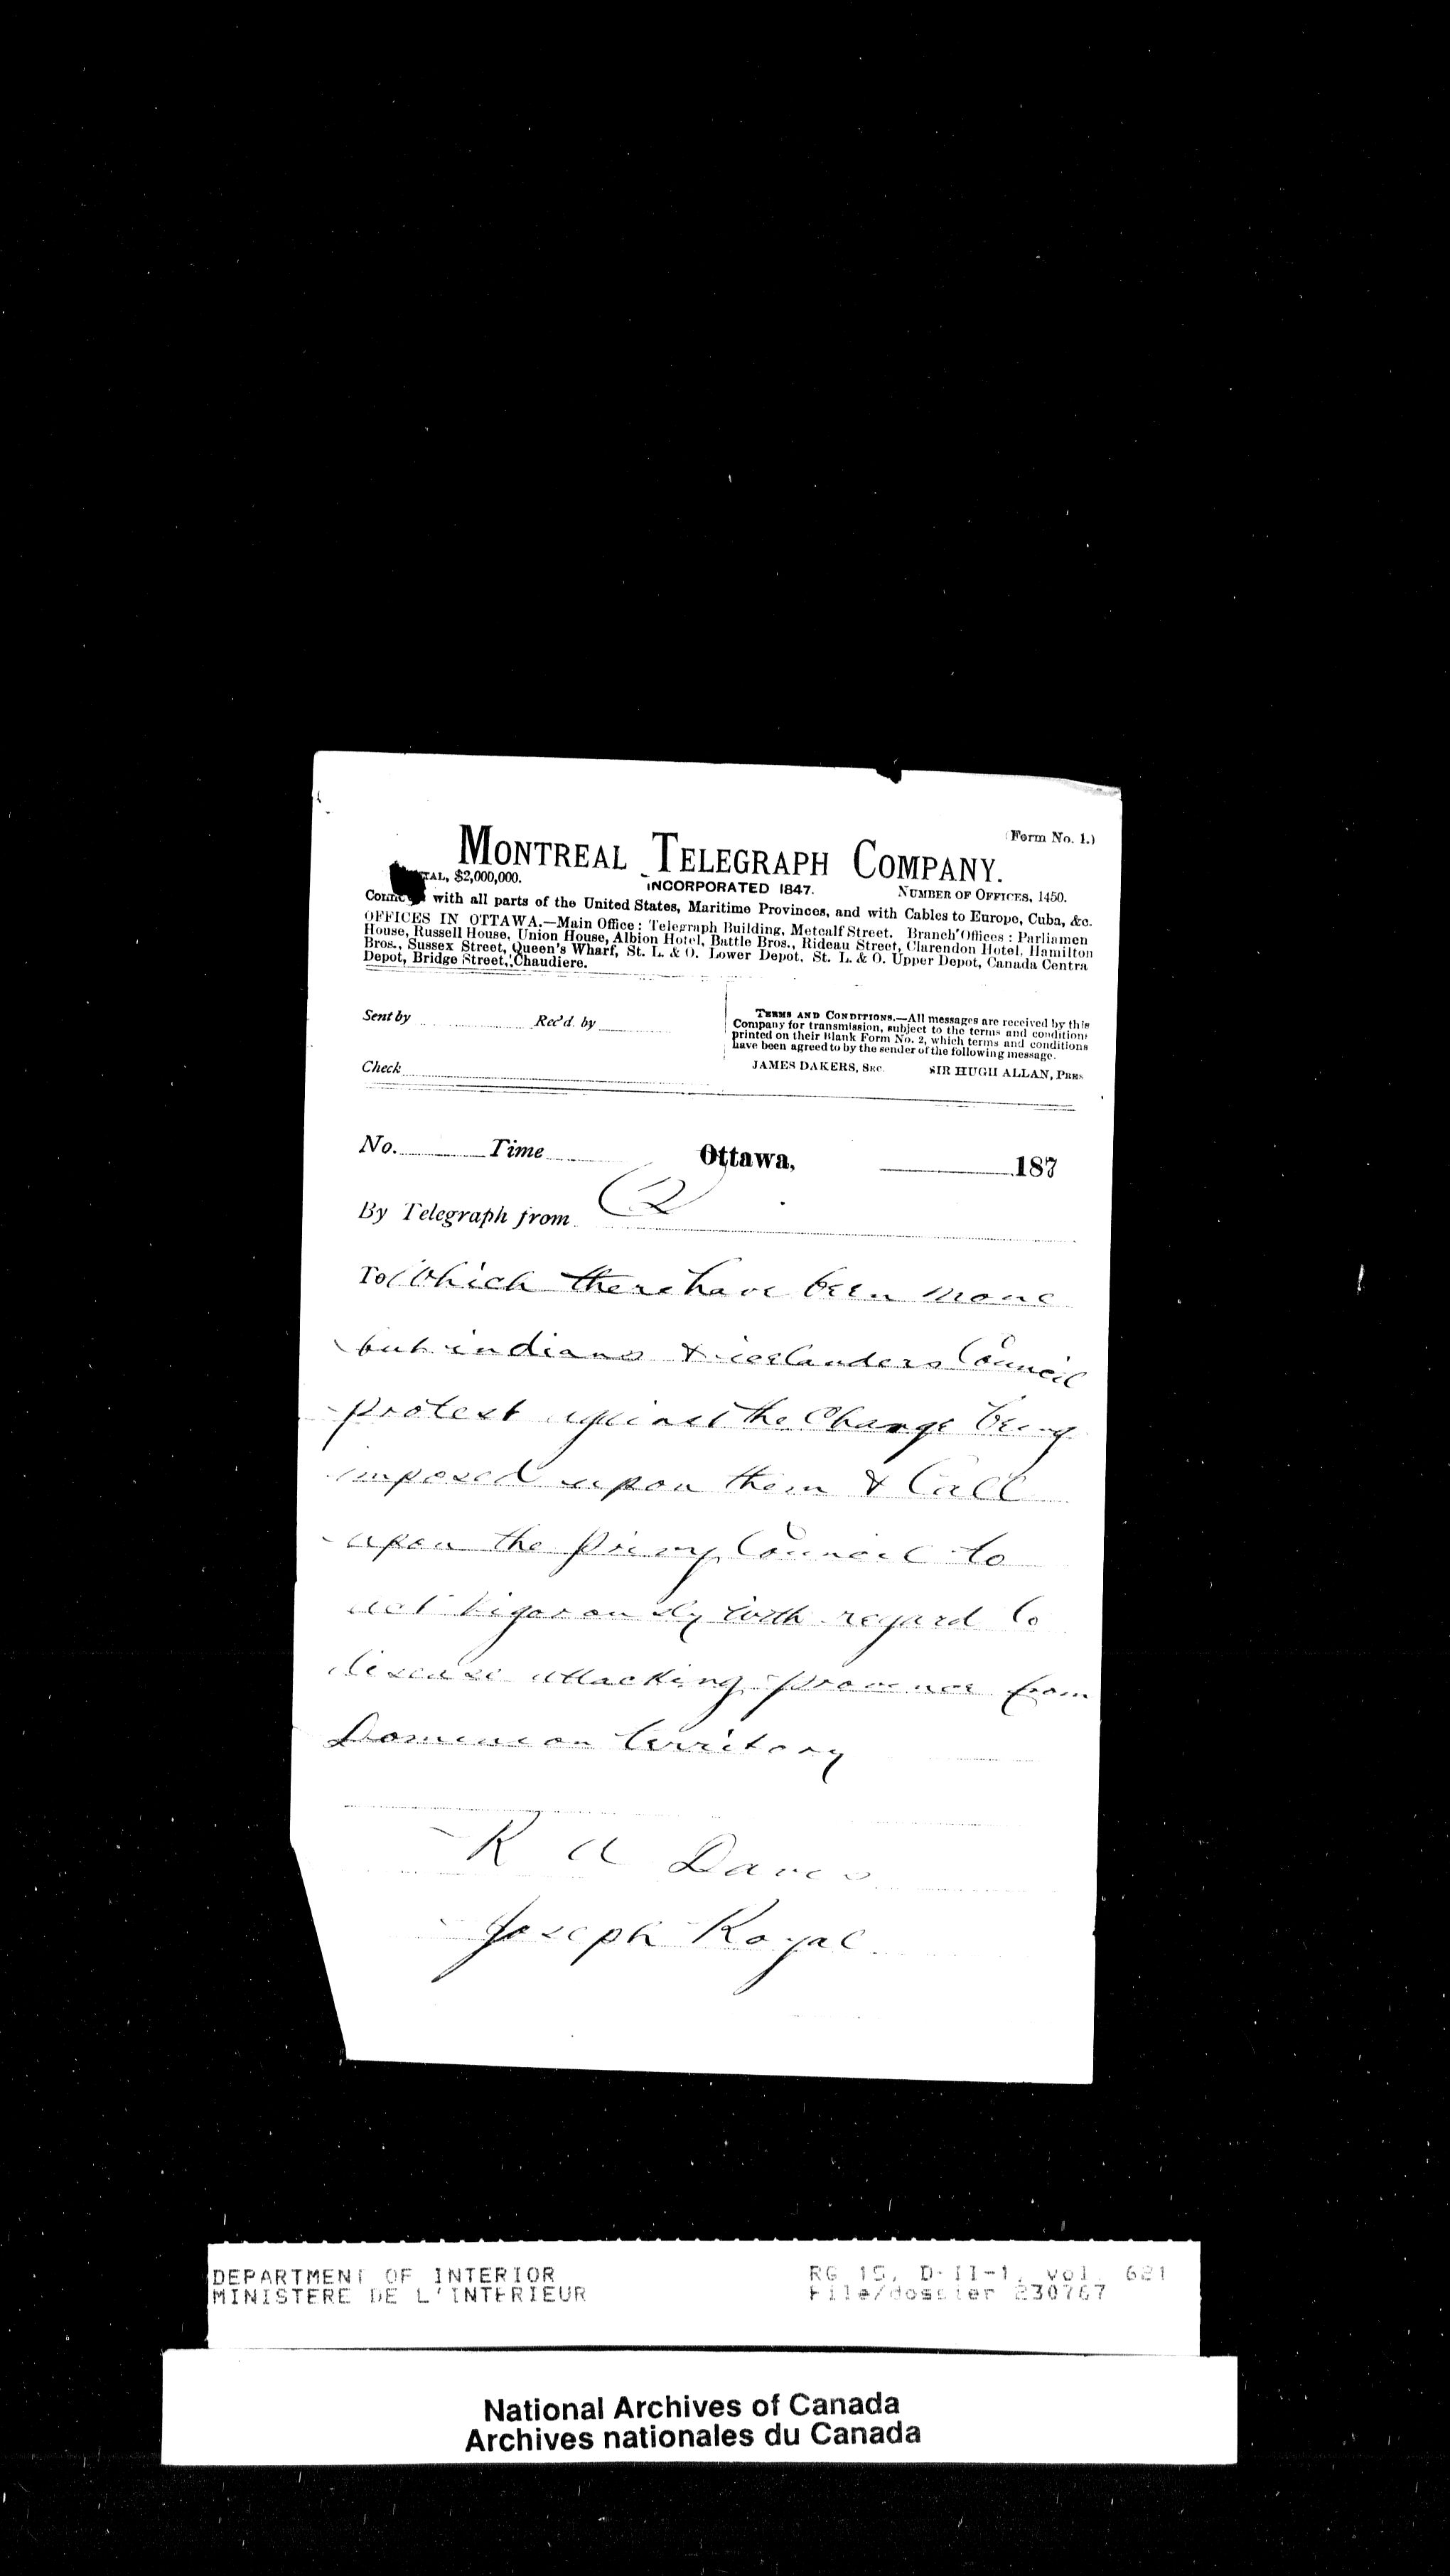 (Form No. 1.)
MONTREAL TELEGRAPH COMPANY.
TAL, $2,000,000. INCORPORATED 1847. NUMBER OF OFFICES, 1450.
Connec with all parts of the United States, Maritime Provinces, and with Cables to Europe, Cuba, &c.
OFFICES IN OTTAWA.—Main Office: Telegraph Building, Metcalf Street. Branch Offices: Parliamen
House, Russell House, Union House, Albion Hotel, Battle Bros., Rideau Street, Clarendon Hotel, Hamilton
Bros., Sussex Street, Queen's Wharf, St. L. & O. Lower Depot, St. L. & O. Upper Depot, Canada Centra
Depot, Bridge Street, Chaudiere.
Sent by Rec'd. by
Check
TERMS AND CONDITIONS.—All messages are received by this
Company for transmission, subject to the terms and conditions
printed on their Blank Form No. 2, which terms and conditions
have been agreed to by the sender of the following message.
JAMES DAKERS, SEC. SIR HUGH ALLAN, PRES
No. Time Ottawa, 187
By Telegraph from (2)
To Which there have been none
but indians & icelanders Council
protest against the Change being
imposed upon them & Call
upon the privy Council to
act vigorously with regard to
disease attacking province from
Dominion territory
R A Davis
Joseph Royal
DEPARTMENT OF INTERIOR RG 15, D-II-1, vol. 621
MINISTERE DE L'INTERIEUR File/dossier 230767
National Archives of Canada
Archives nationales du Canada